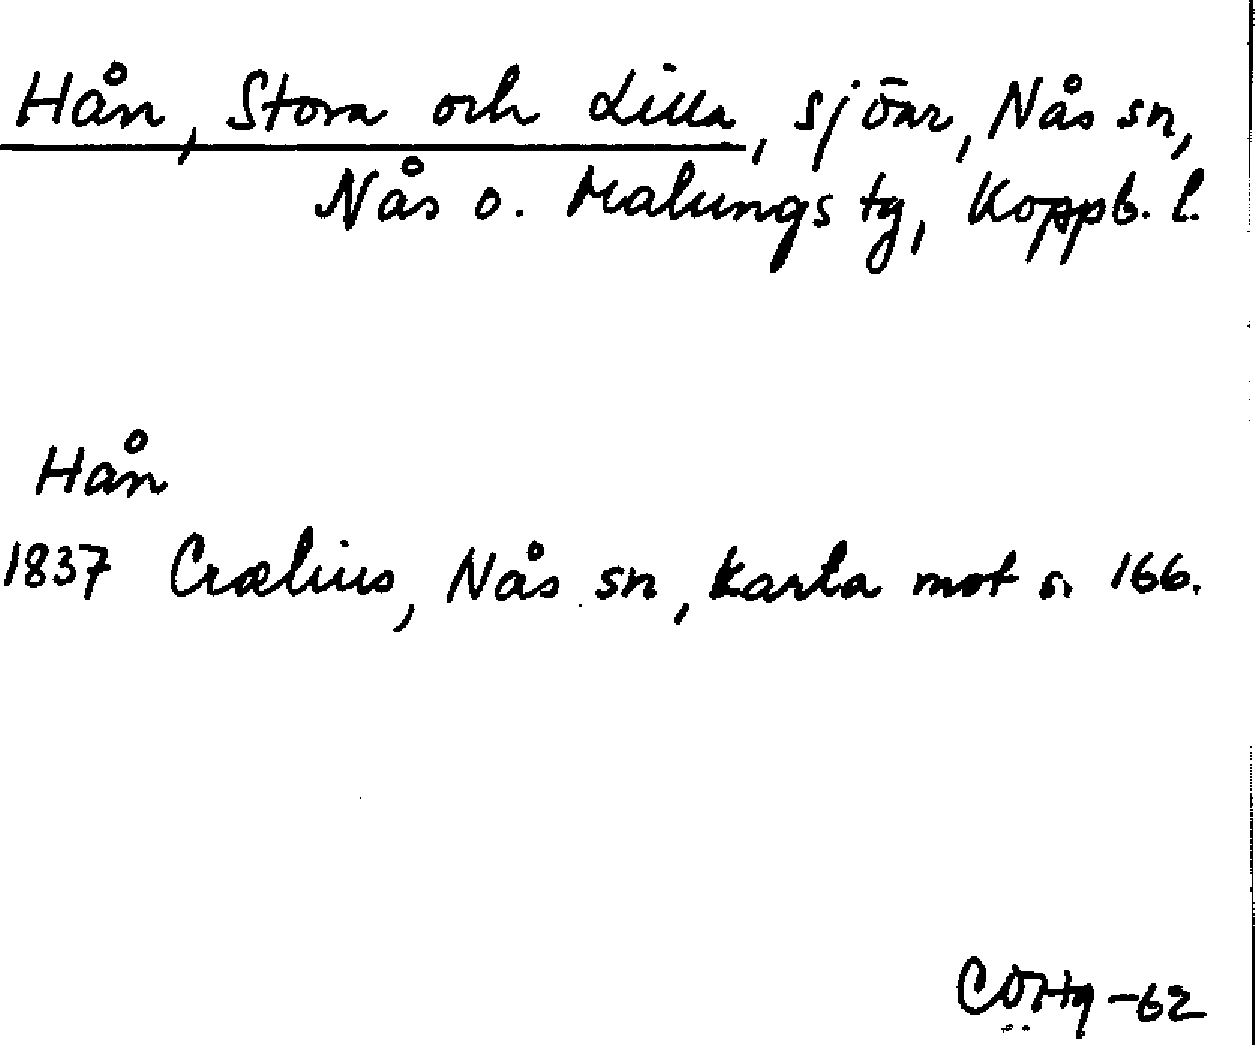 Hån, Stora och Lilla, sjöar, Nås sn,
Nås o. Malungs tg, Koppb. l.
Hån
1837 Crælius, Nås sn, Karta mot s. 166.
-62